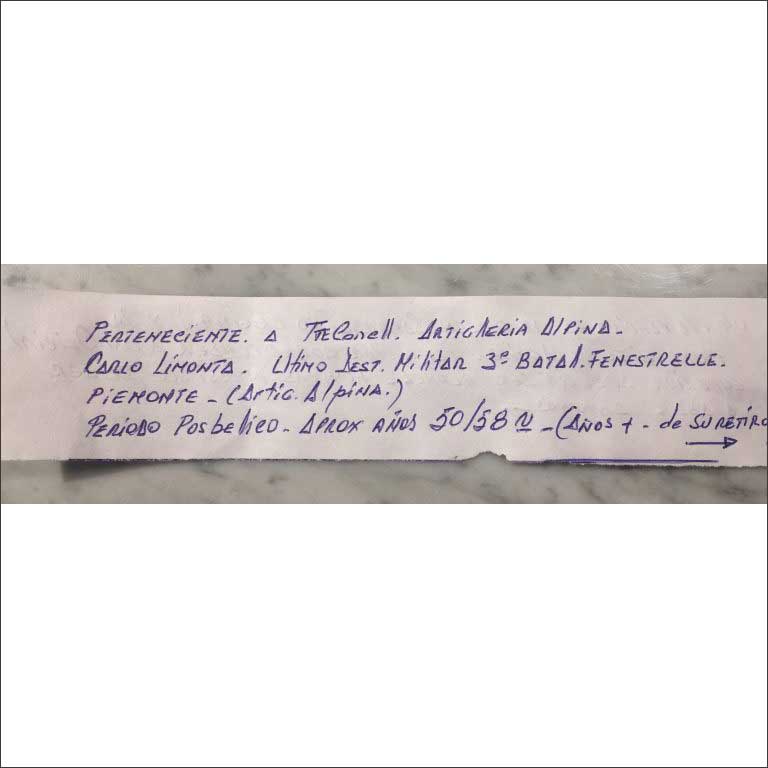 PERTENECIENTE. A TTECONELL. ARTIGLIERIA ALPINA-
CARLO LIMONTA. UTIMO DEST. MILITAR 3º BATAL. FENESTRELLE.
PIEMONTE - (ARTIG. ALPINA.)
PERIODO POSBELICO - APROX AÑOS 50/58 - (AÑOS + - de SU RETIRO